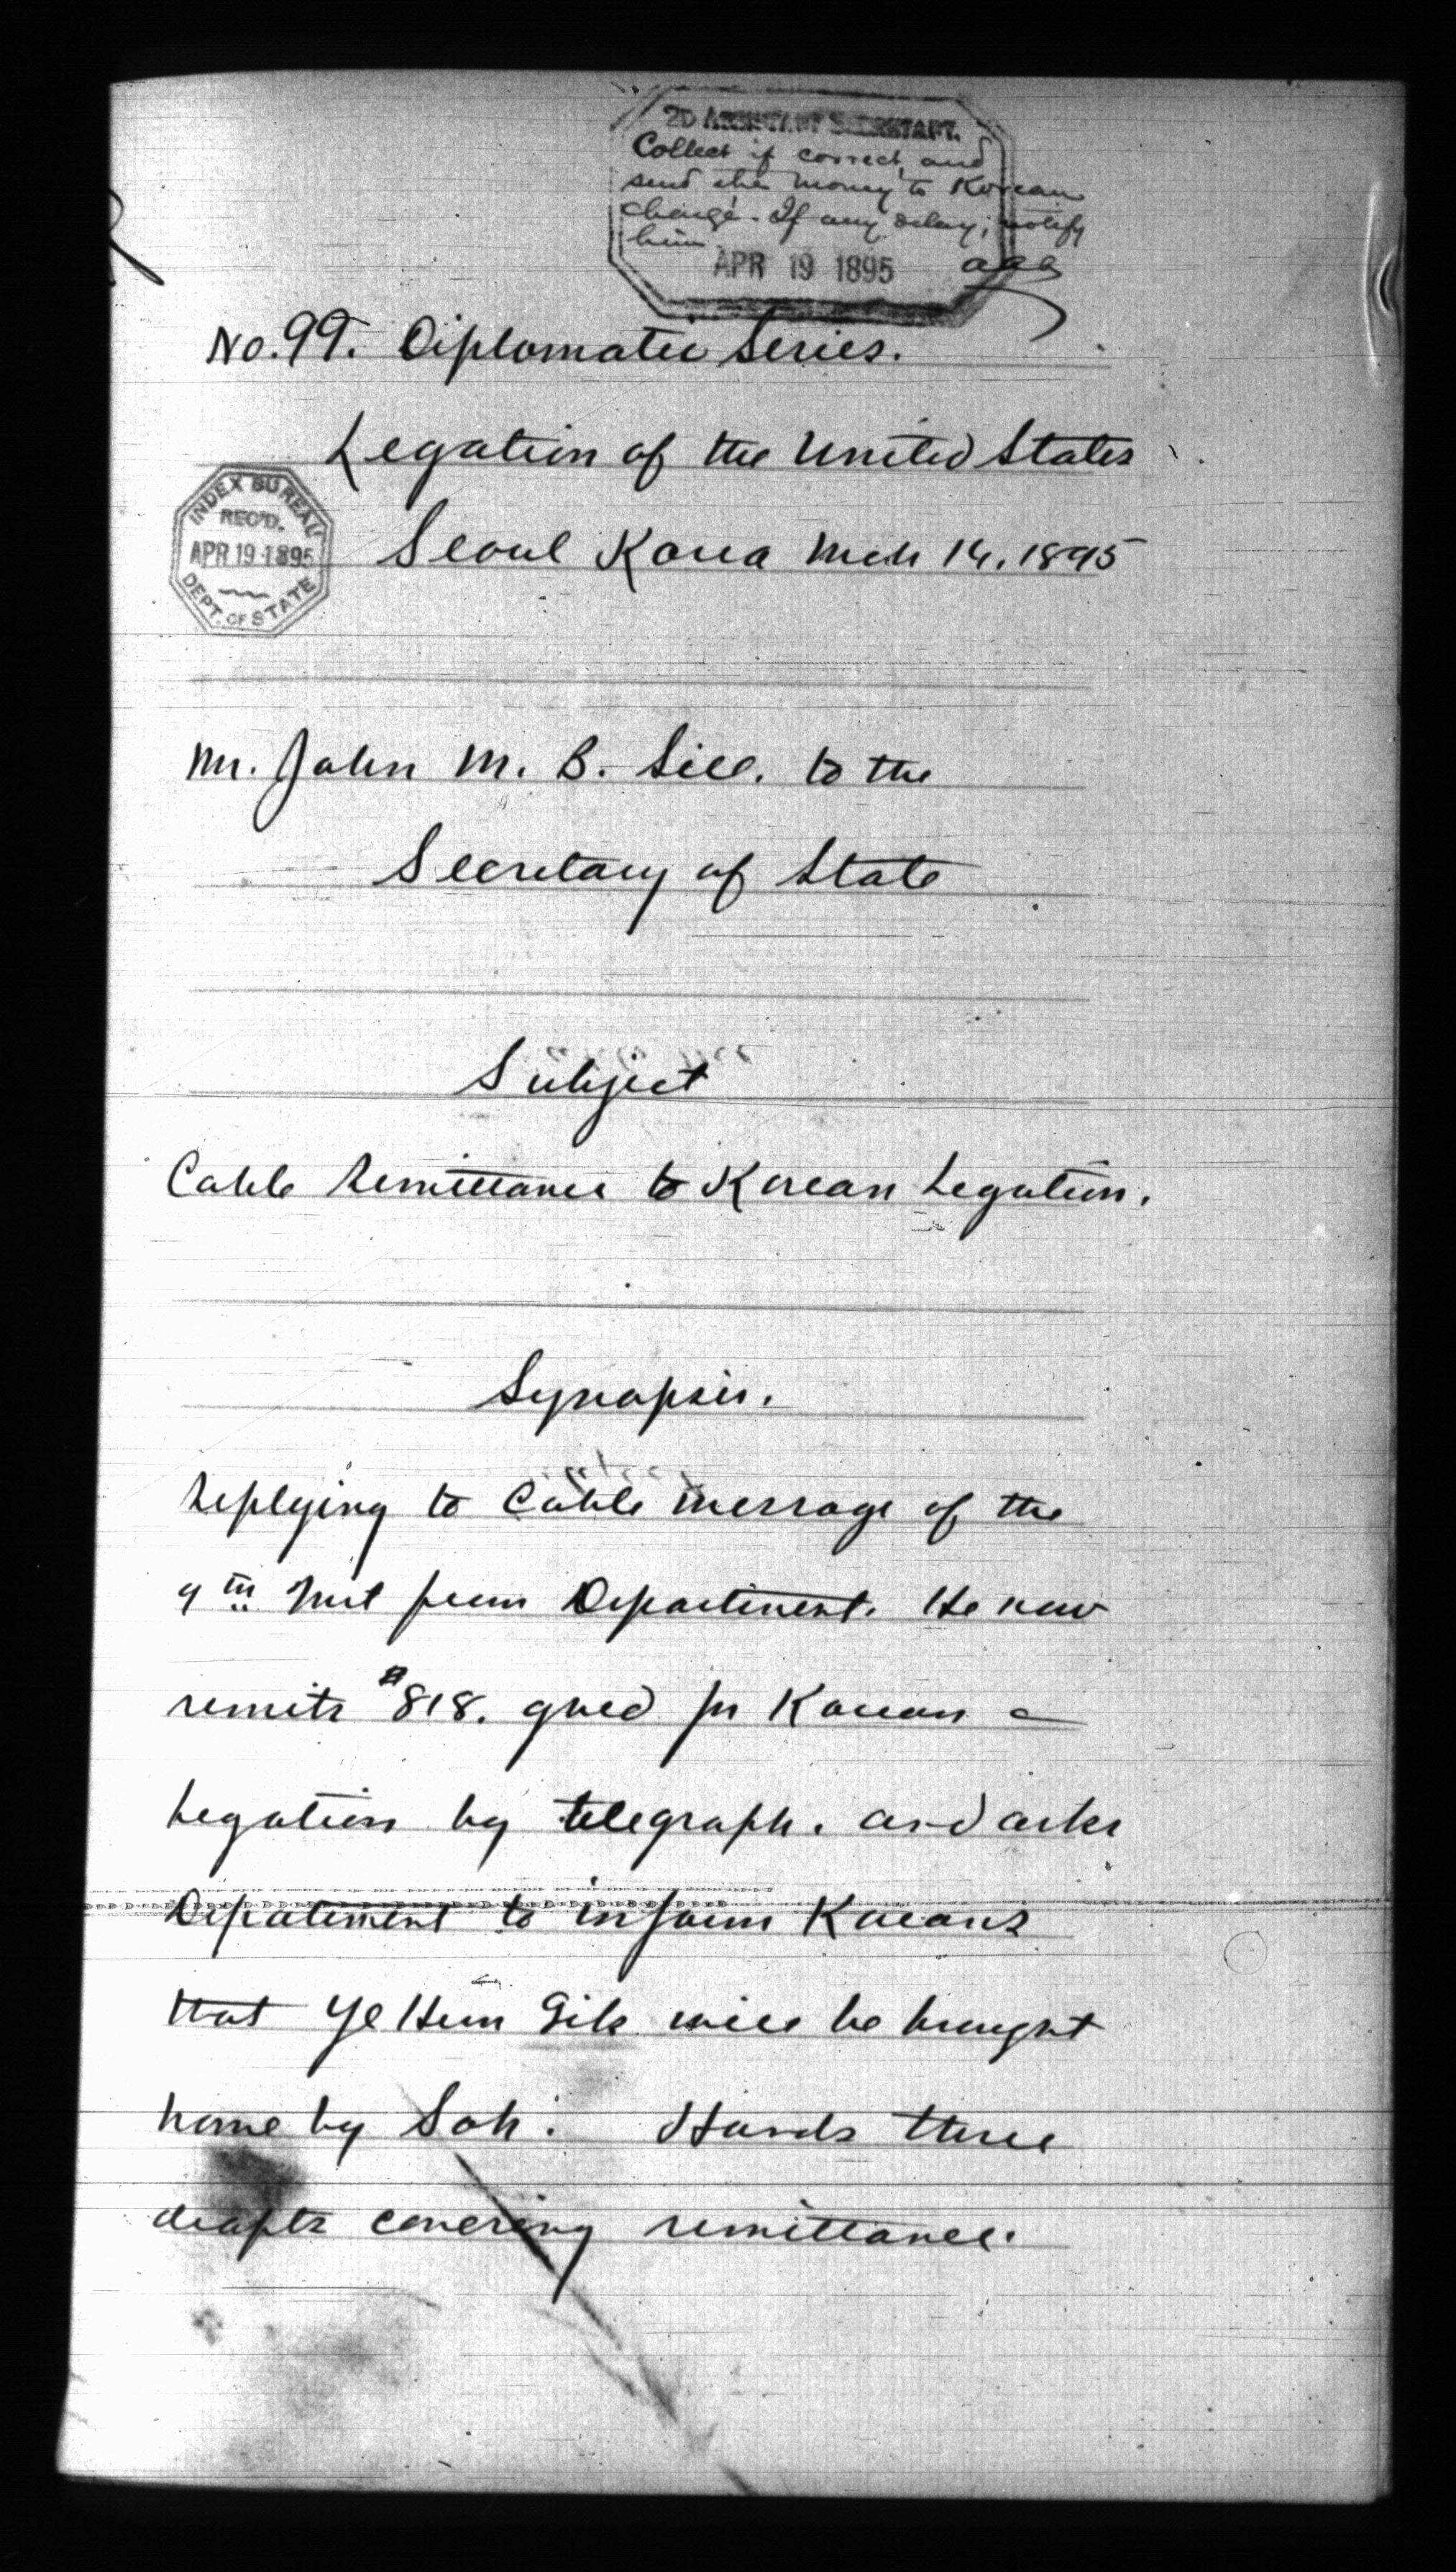 2D ASSISTANT SECRETARY.
Collect if correct, and
send the money to Korean
chargé. If any delay, notify
him.
APR 19 1895
aaa
No. 99. Diplomatic Series.
Legation of the United States
INDEX BUREAU
REC'D.
APR 19 1895
DEPT. OF STATE
Seoul Korea Mch 14, 1895
Mr. John M. B. Sill. to the
Secretary of State
Subject
Cable Remittance to Korean Legation.
Synopsis.
Replying to Cable message of the
9th Inst from Department. He now
remits $818. gold for Korean
Legation by telegraph. and asks
Department to inform Koreans
that Ye Hun Gik will be brought
home by Soh. Hands three
drafts covering remittance.